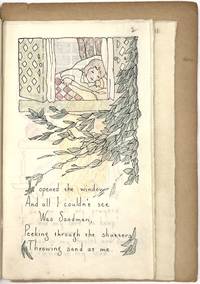 2
I opened the window
And all I couldn't see
Was Sandman,
Peeking through the shutters
Throwing sand at me.